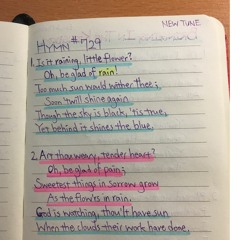 NEW TUNE
HYMN #729
1. Is it raining, little flower?
Oh, be glad of rain!
Too much sun would wither thee;
Soon 'twill shine again
Though the sky is black, 'tis true,
Yet behind it shines the blue.
2. Art thou weary, tender heart?
Oh, be glad of pain;
Sweetest things in sorrow grow
As the flow'rs in rain.
God is watching, thou'lt have sun
When the clouds their work have done.